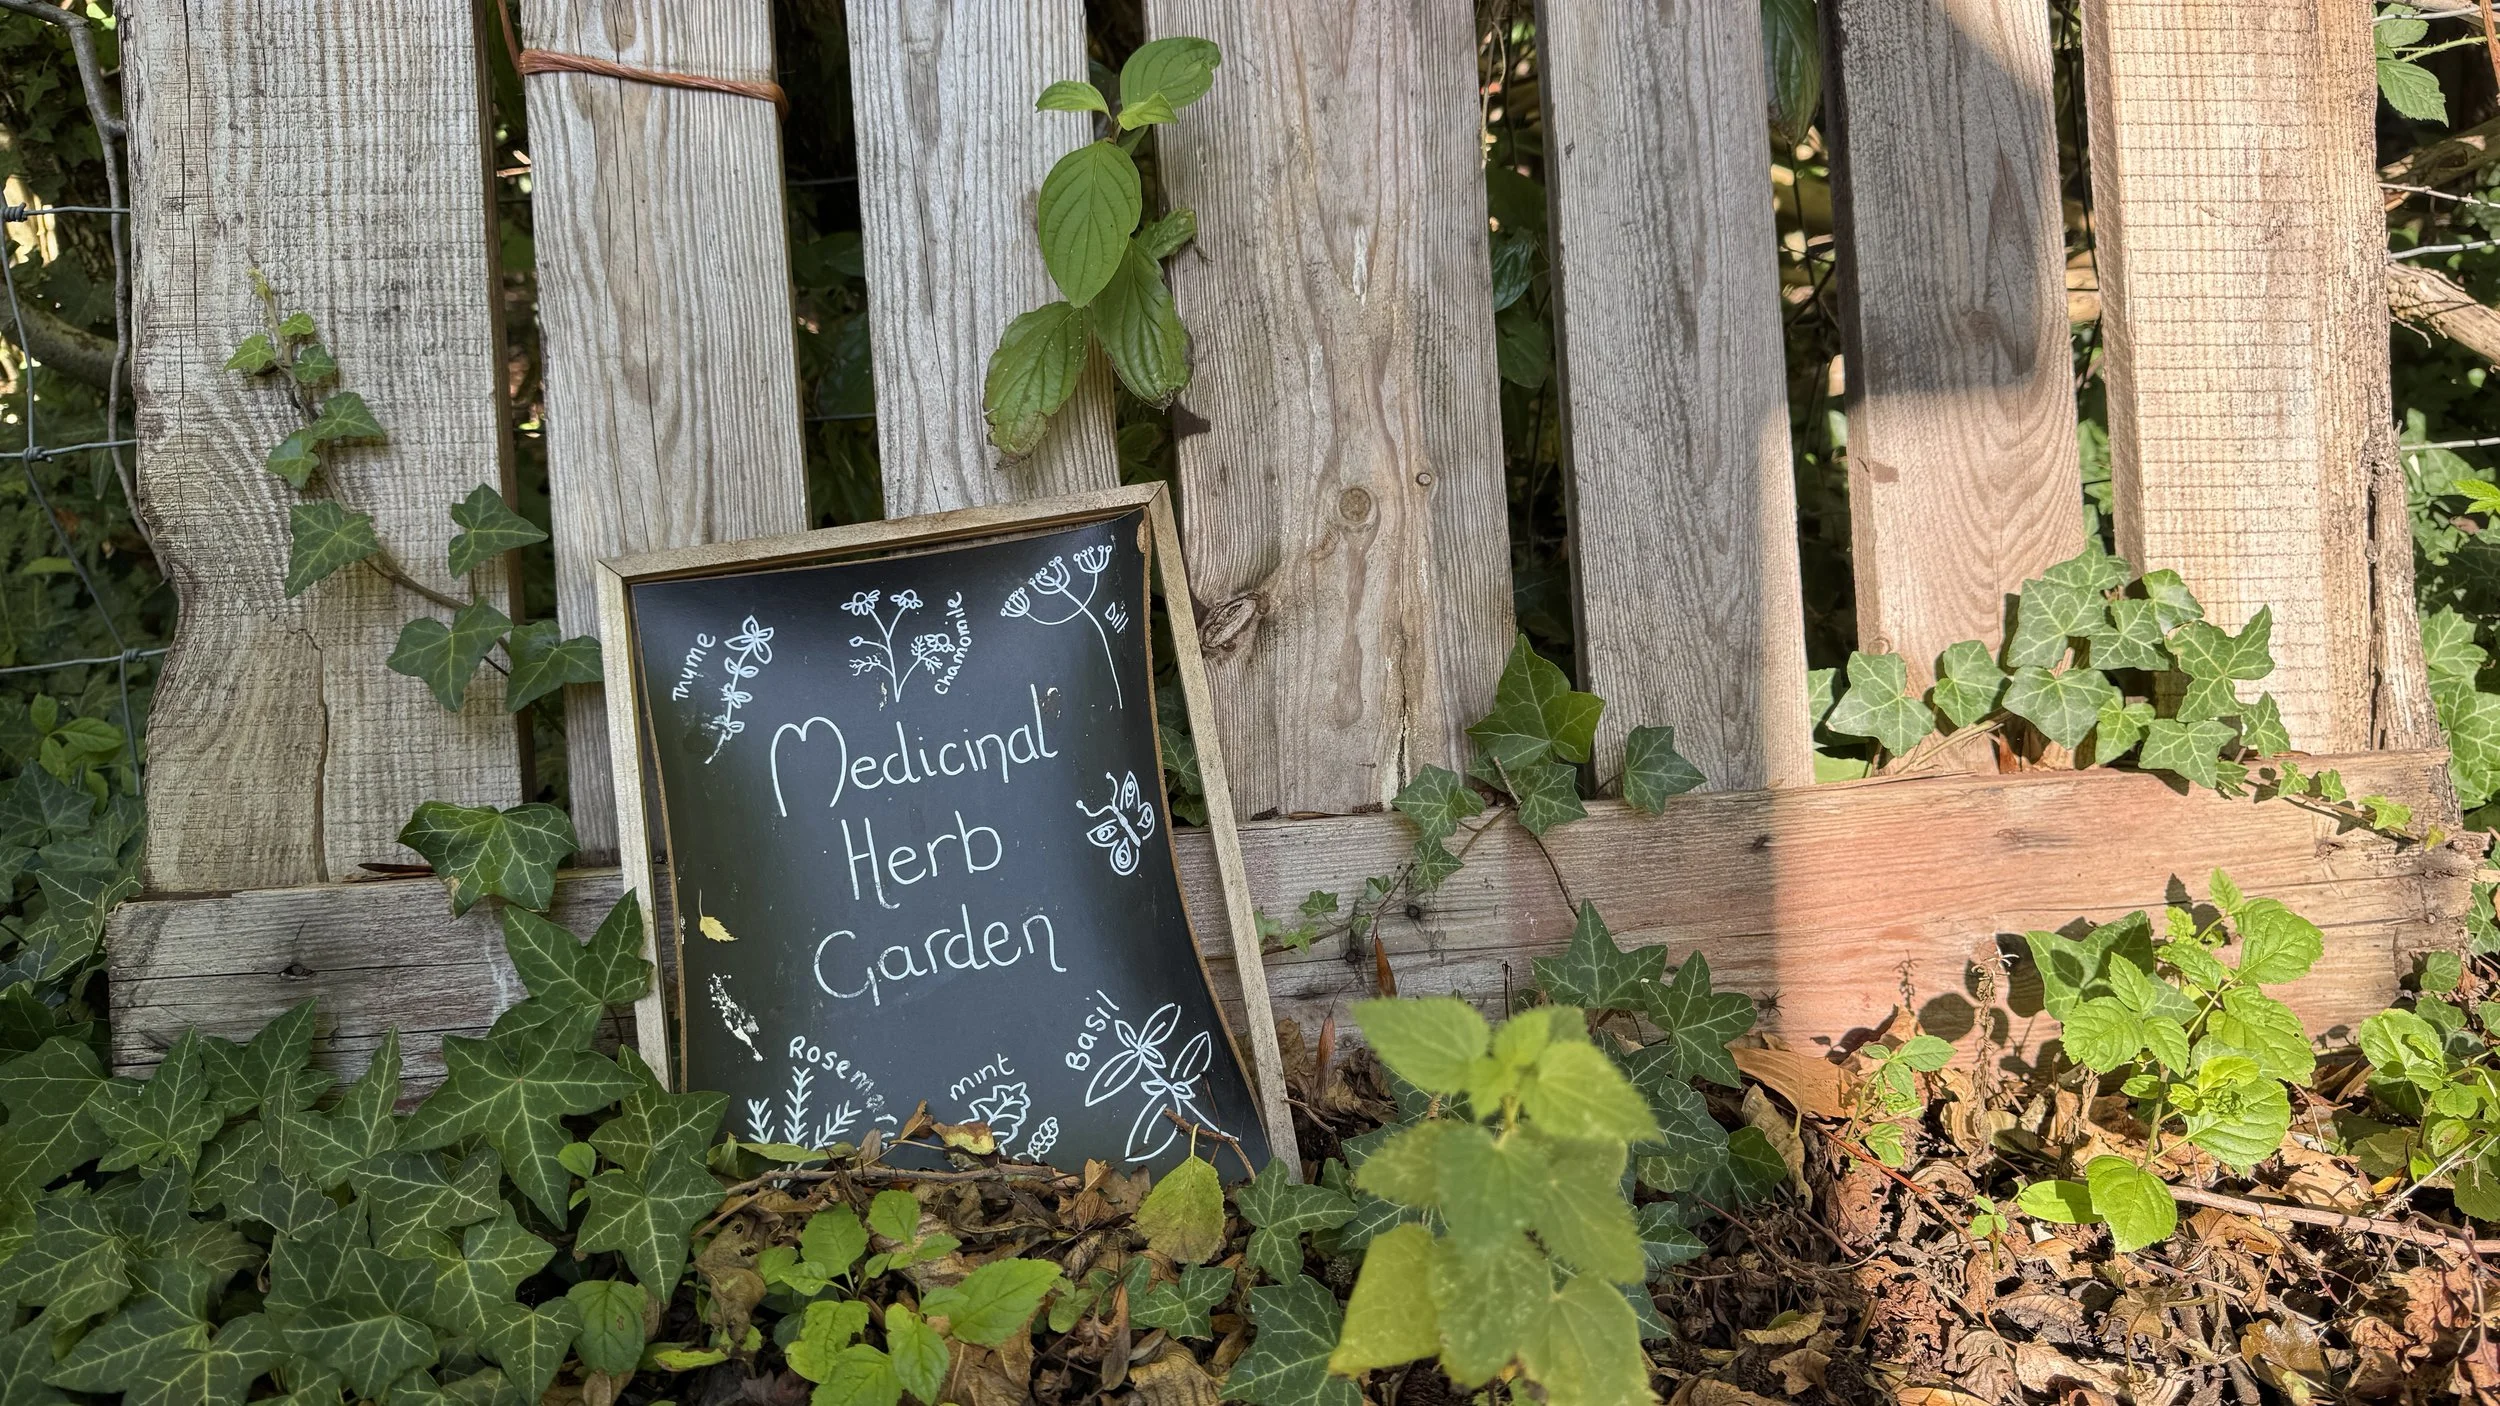 Thyme
chamomile
Dill
Medicinal
Herb
Garden
Rosem
mint
Basil